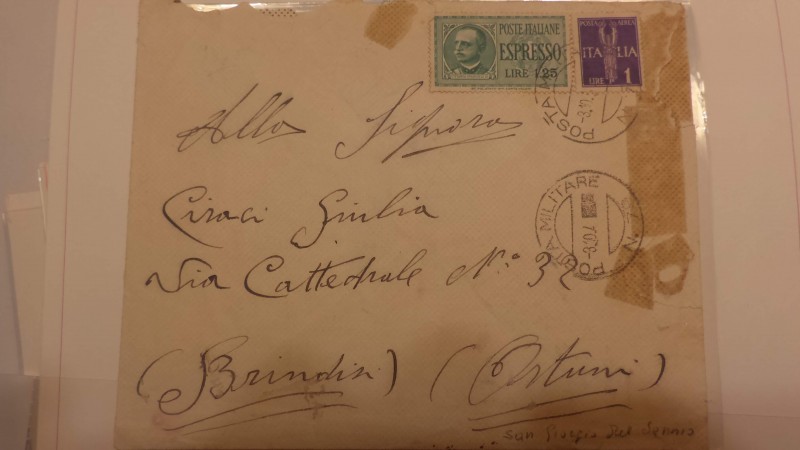 POSTE ITALIANE
ESPRESSO
LIRE 1,25
POSTA AEREA
ITALIA
LIRE 1
POSTA
Alla Signora
POSTA MILITARE N. 78
Ciraci Giulia
Via Cattedrale N.º 32
(Brindisi) (Ostuni)
San Giorgio del Sannio